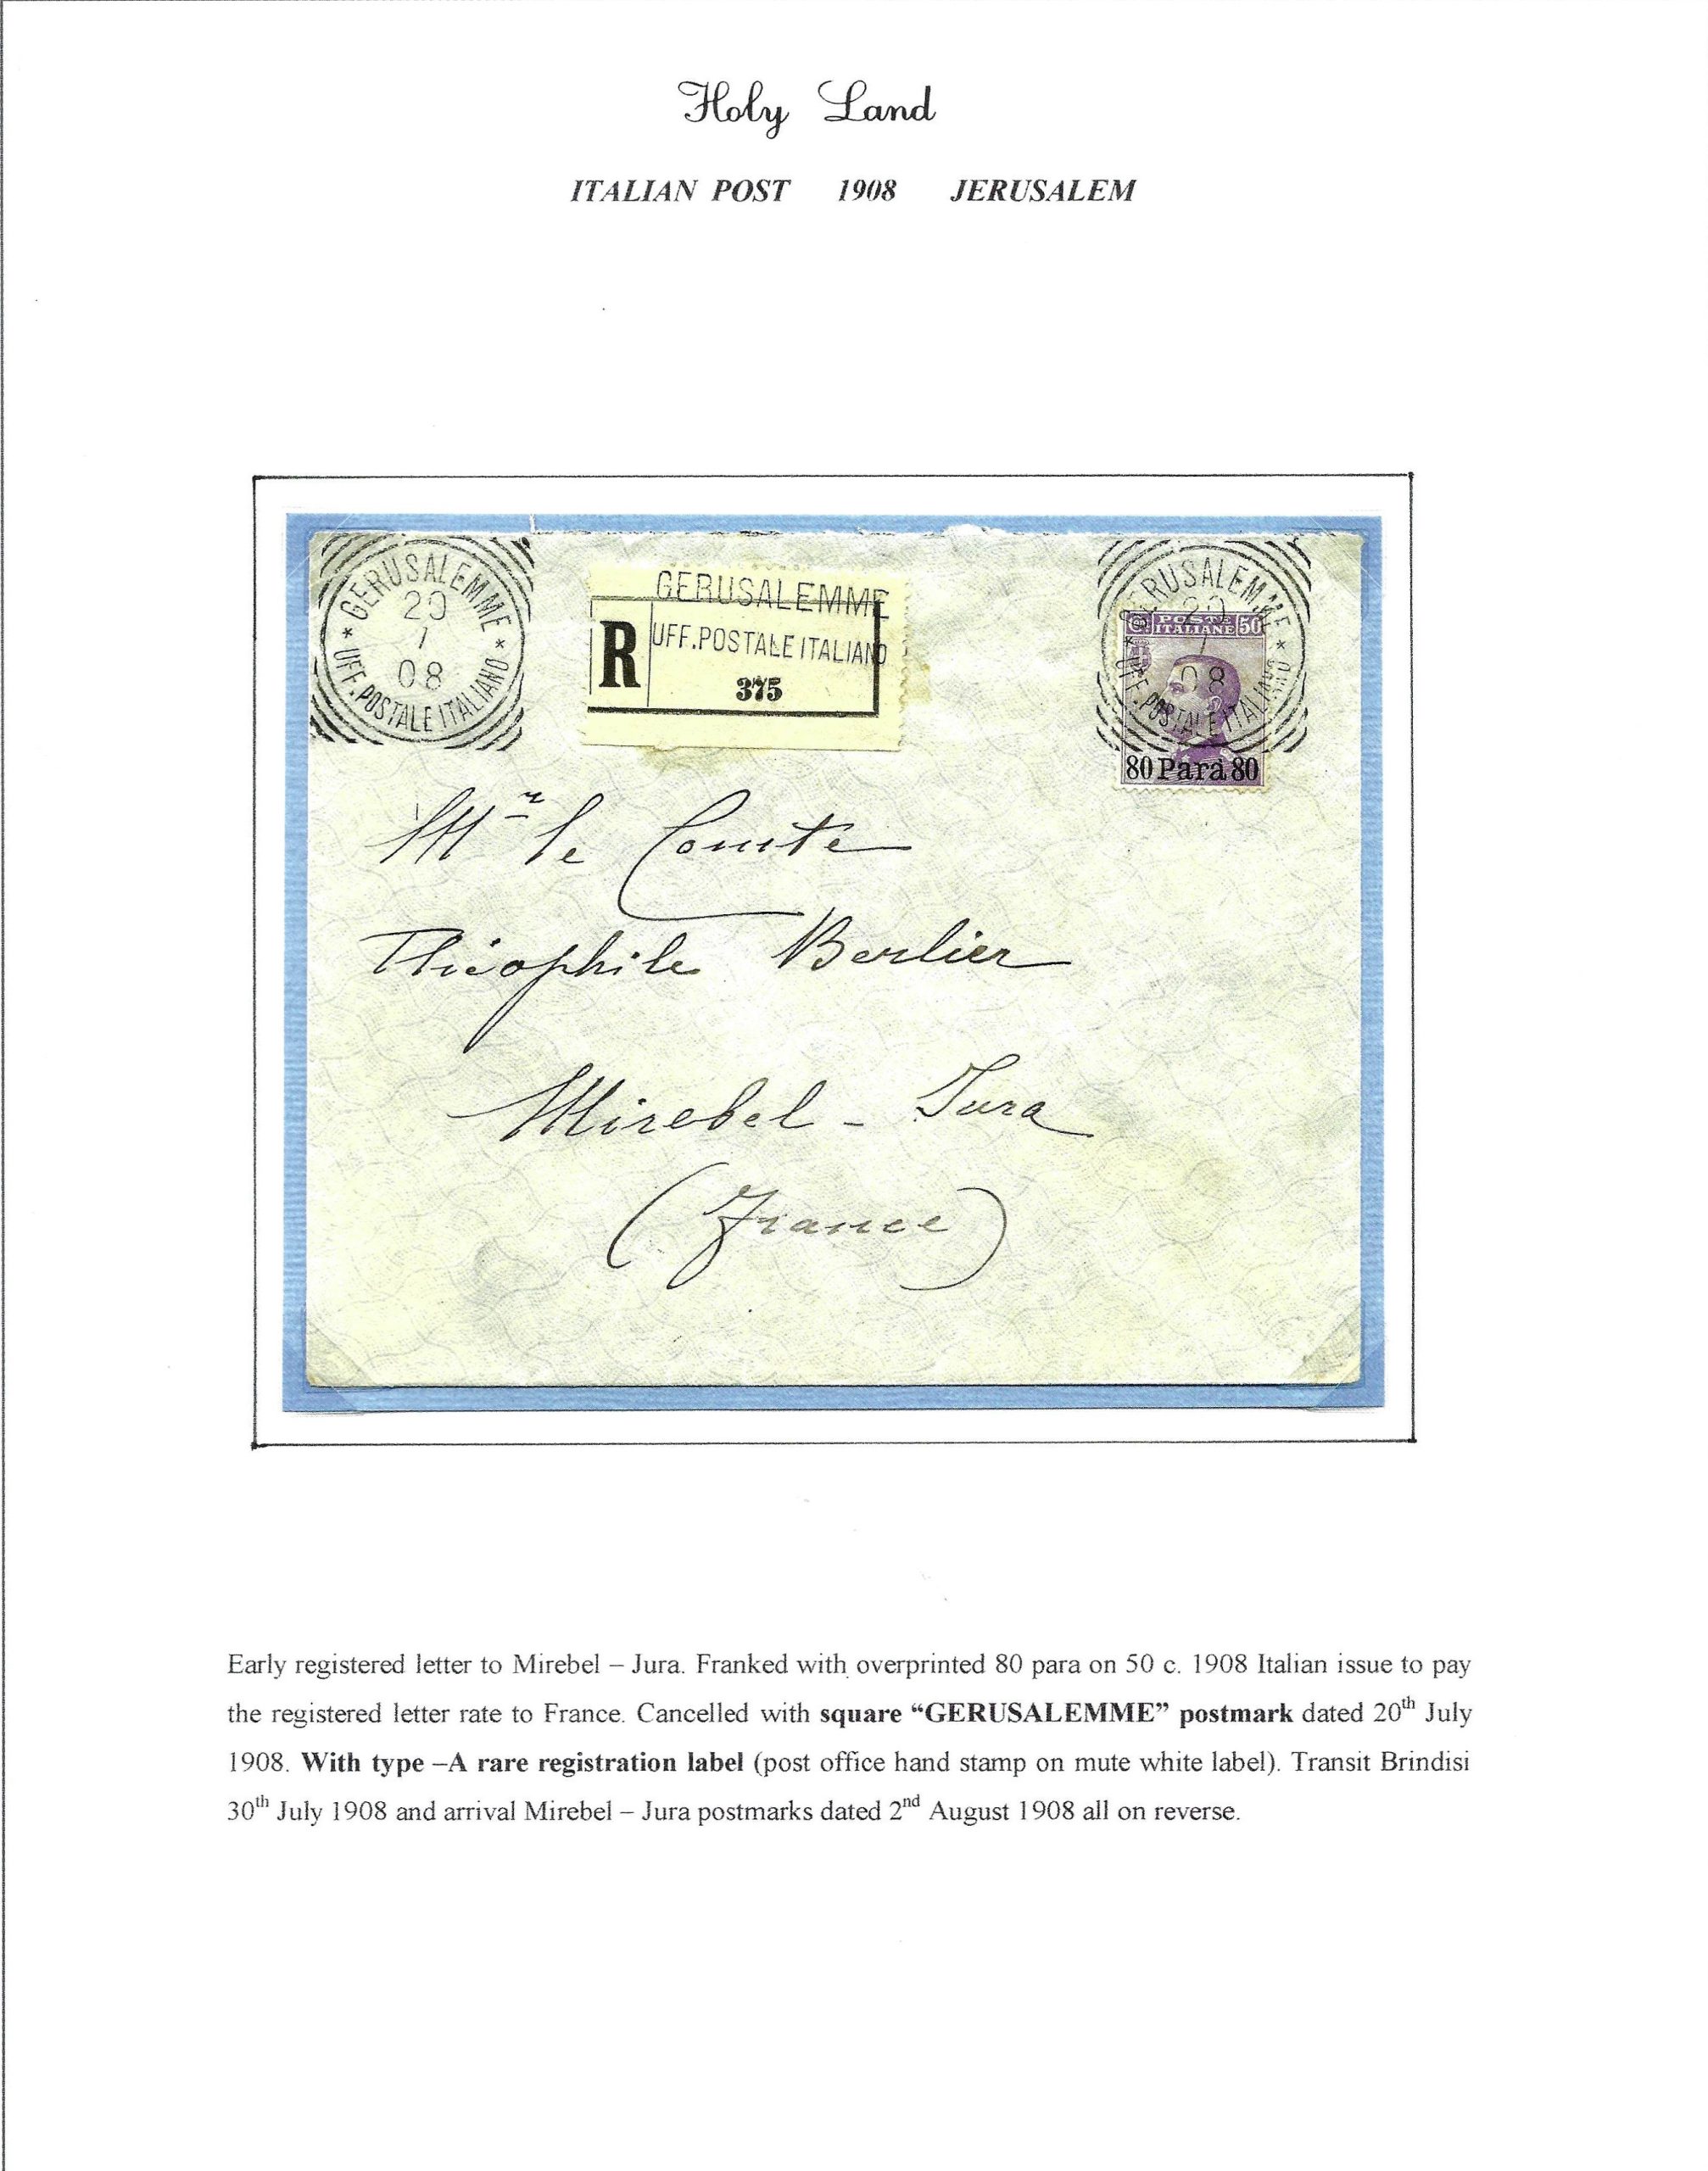 Holy Land
ITALIAN POST 1908 JERUSALEM
* GERUSALEMME *
20
7
08
UFF. POSTALE ITALIANO
GERUSALEMME
UFF. POSTALE ITALIANO
R
375
* GERUSALEMME *
20
7
08
UFF. POSTALE ITALIANO
POSTE
ITALIANE 50
80 Para 80
Mr le Comte
Théophile Berlier
Mirebel - Jura
(France)
Early registered letter to Mirebel – Jura. Franked with overprinted 80 para on 50 c. 1908 Italian issue to pay
the registered letter rate to France. Cancelled with square “GERUSALEMME” postmark dated 20th July
1908. With type –A rare registration label (post office hand stamp on mute white label). Transit Brindisi
30th July 1908 and arrival Mirebel – Jura postmarks dated 2nd August 1908 all on reverse.